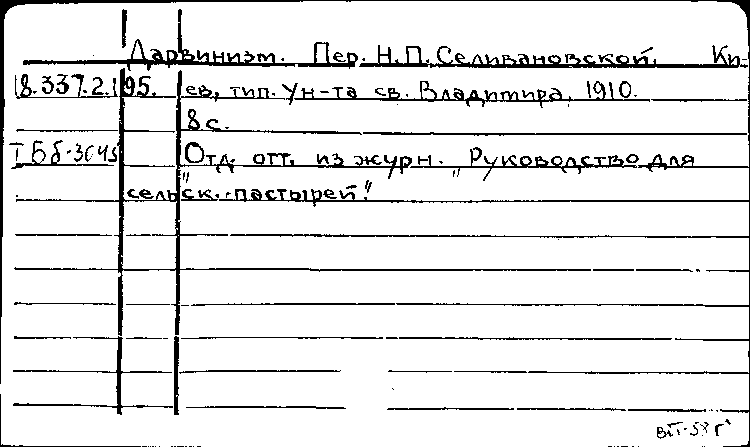 Дарвинизм. Пер. Н.П. Селивановской. Ки-
18.337.2.195. ев, тип. Ун-та св. Владимира, 1910.
8 с.
Отд. отт. из журн. „Руководство для
сельск. пастырей."